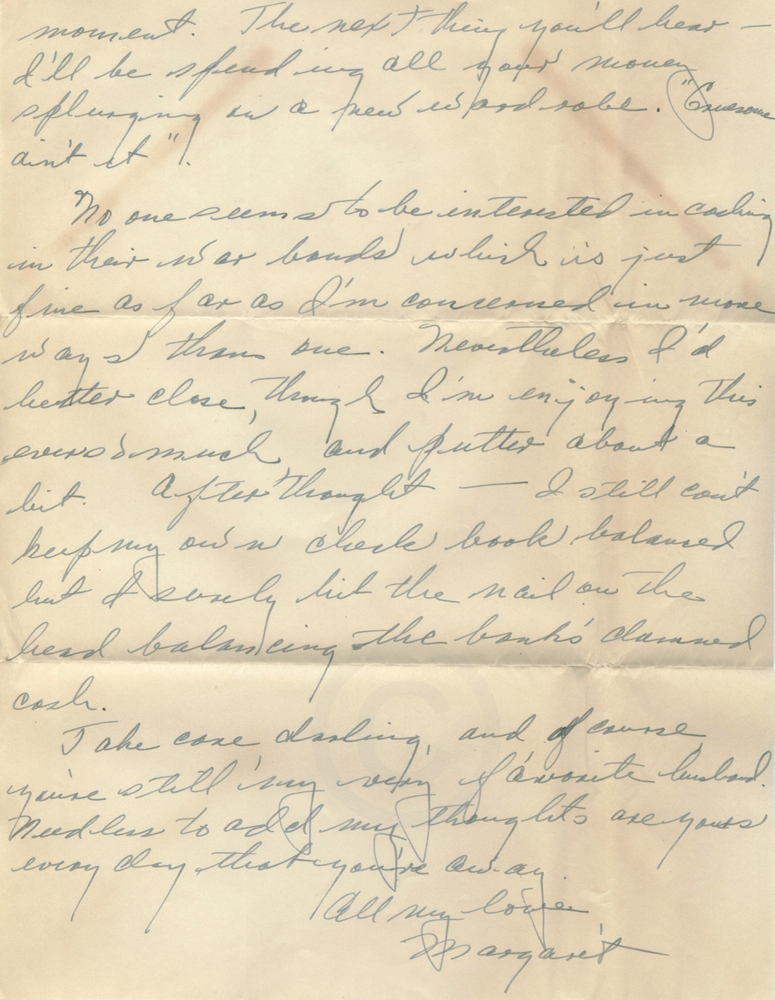 moment. The next thing you'll hear —
I'll be spending all your money
splurging on a new wardrobe. "Gruesome
ain't it".
No one seems to be interested in cashing
in their war bonds which is just
fine as far as I'm concerned in more
ways than one. Nevertheless I'd
better close, though I'm enjoying this
ever so much and putter about a
bit. After thought — I still can't
keep my own check book balanced
but I surely hit the nail on the
head balancing the bank's damned
cash.
Take care darling, and of course
you're still my very favorite husband.
Needless to add my thoughts are yours
every day that you're away.
All my love
Margaret